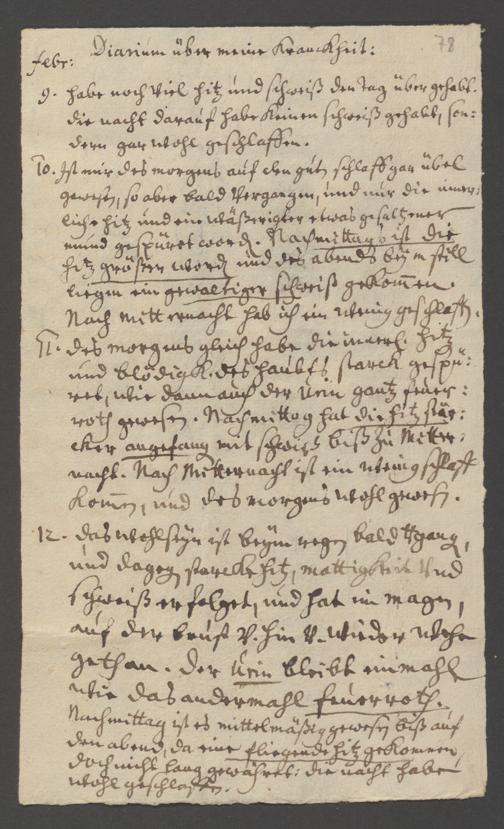 78
Diarium über meine Kranckheit:
Febr:
9. habe noch viel hitz und schweiß den Tag über gehabt.
die nacht darauf habe keinen schweiß gehabt, son-
dern gar wohl geschlaffen.
10. Ist mir des morgens auf den gut. schlaff gar übel
gewesen, so aber bald vergangen, und nur die inner-
liche hitz und ein wäßerigter etwas gesaltzener
mund gespüret word. Nachmittags ist die
hitz größer word. und des abends beÿm still
liegen ein gewaltiger schweiß gekommen.
Nach mitternacht hab ich ein wenig geschlaffen.
11. des morgens gleich habe die innerl. hitz
und blödigk. des haubts starck gespü-
ret, wie dann auch der Urin gantz feuer-
roth gewesen. Nachmittag hat die hitz stär-
cker angefang mit schweiß biß zu Mitter-
nacht. Nach Mitternacht ist ein wenig schlaff
kommen, und des morgens wohl gewesen.
12. das wohlseÿn ist beÿm regen bald vergangen,
und dageg. starcke hitz, mattigkeit und
schweiß erfolget, und hat im magen,
auf der brust v. hin v. wieder wehe
gethan. Der Urin bleibt einmahl
wie das andermahl feuerroth.
Nachmittag ist es mittelmäßig gewesen biß auf
den abend, da eine fliegende hitz gekommen,
doch nicht lang gewähret. die nacht habe
wohl geschlaffen.